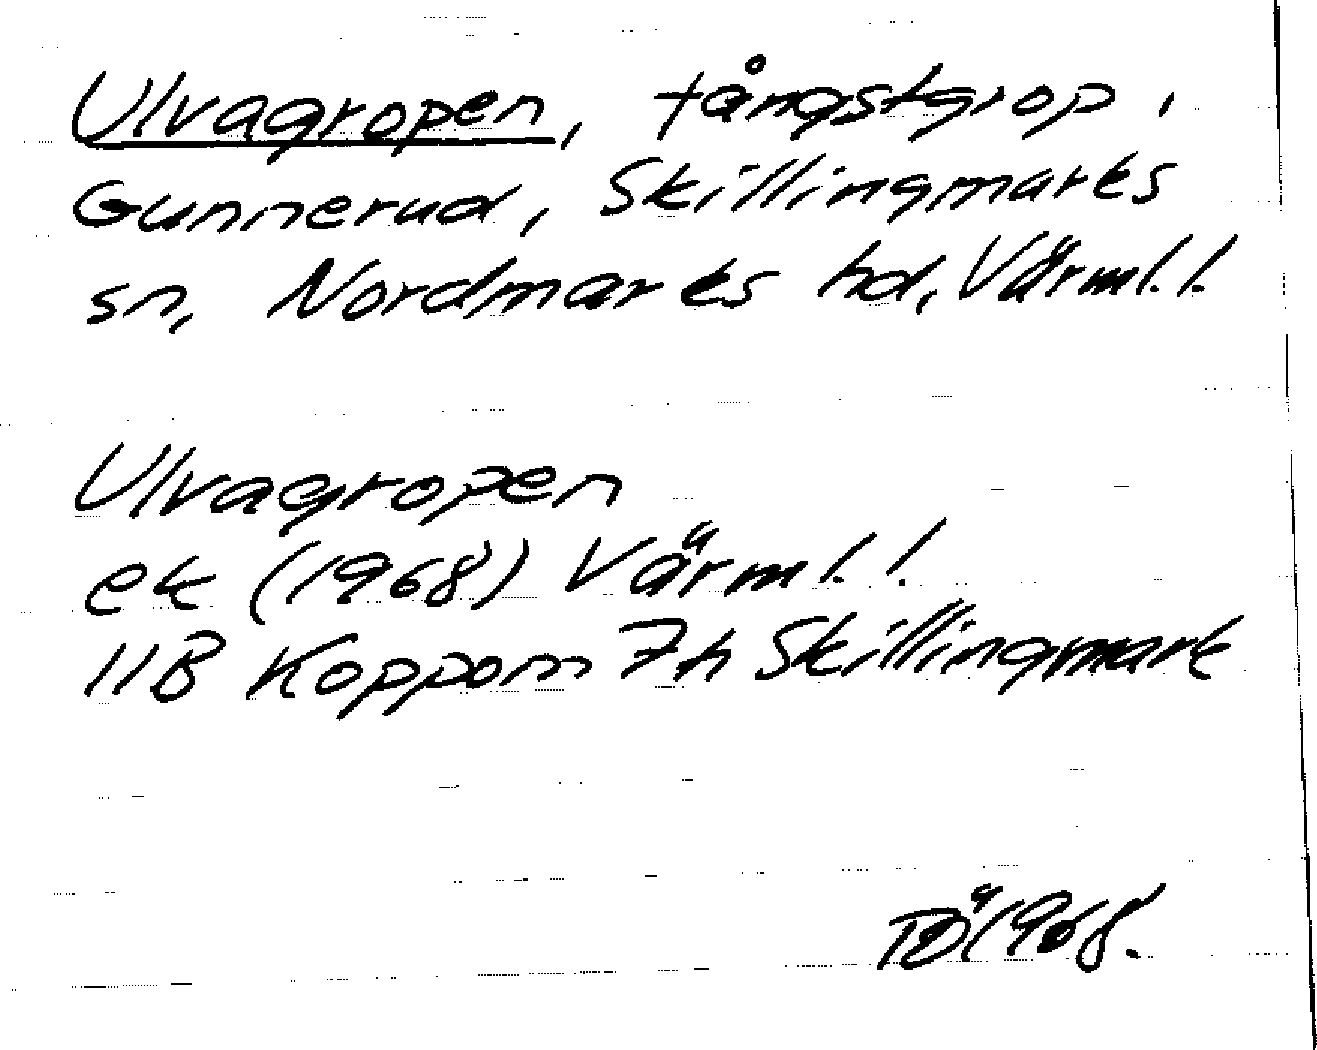 Ulvagropen, fångstgrop,
Gunnerud, Skillingmarks
sn, Nordmarks hd, Värml. l.
Ulvagropen
ek (1968) Värml. l.
11B Koppom 7h Skillingmark
1968.